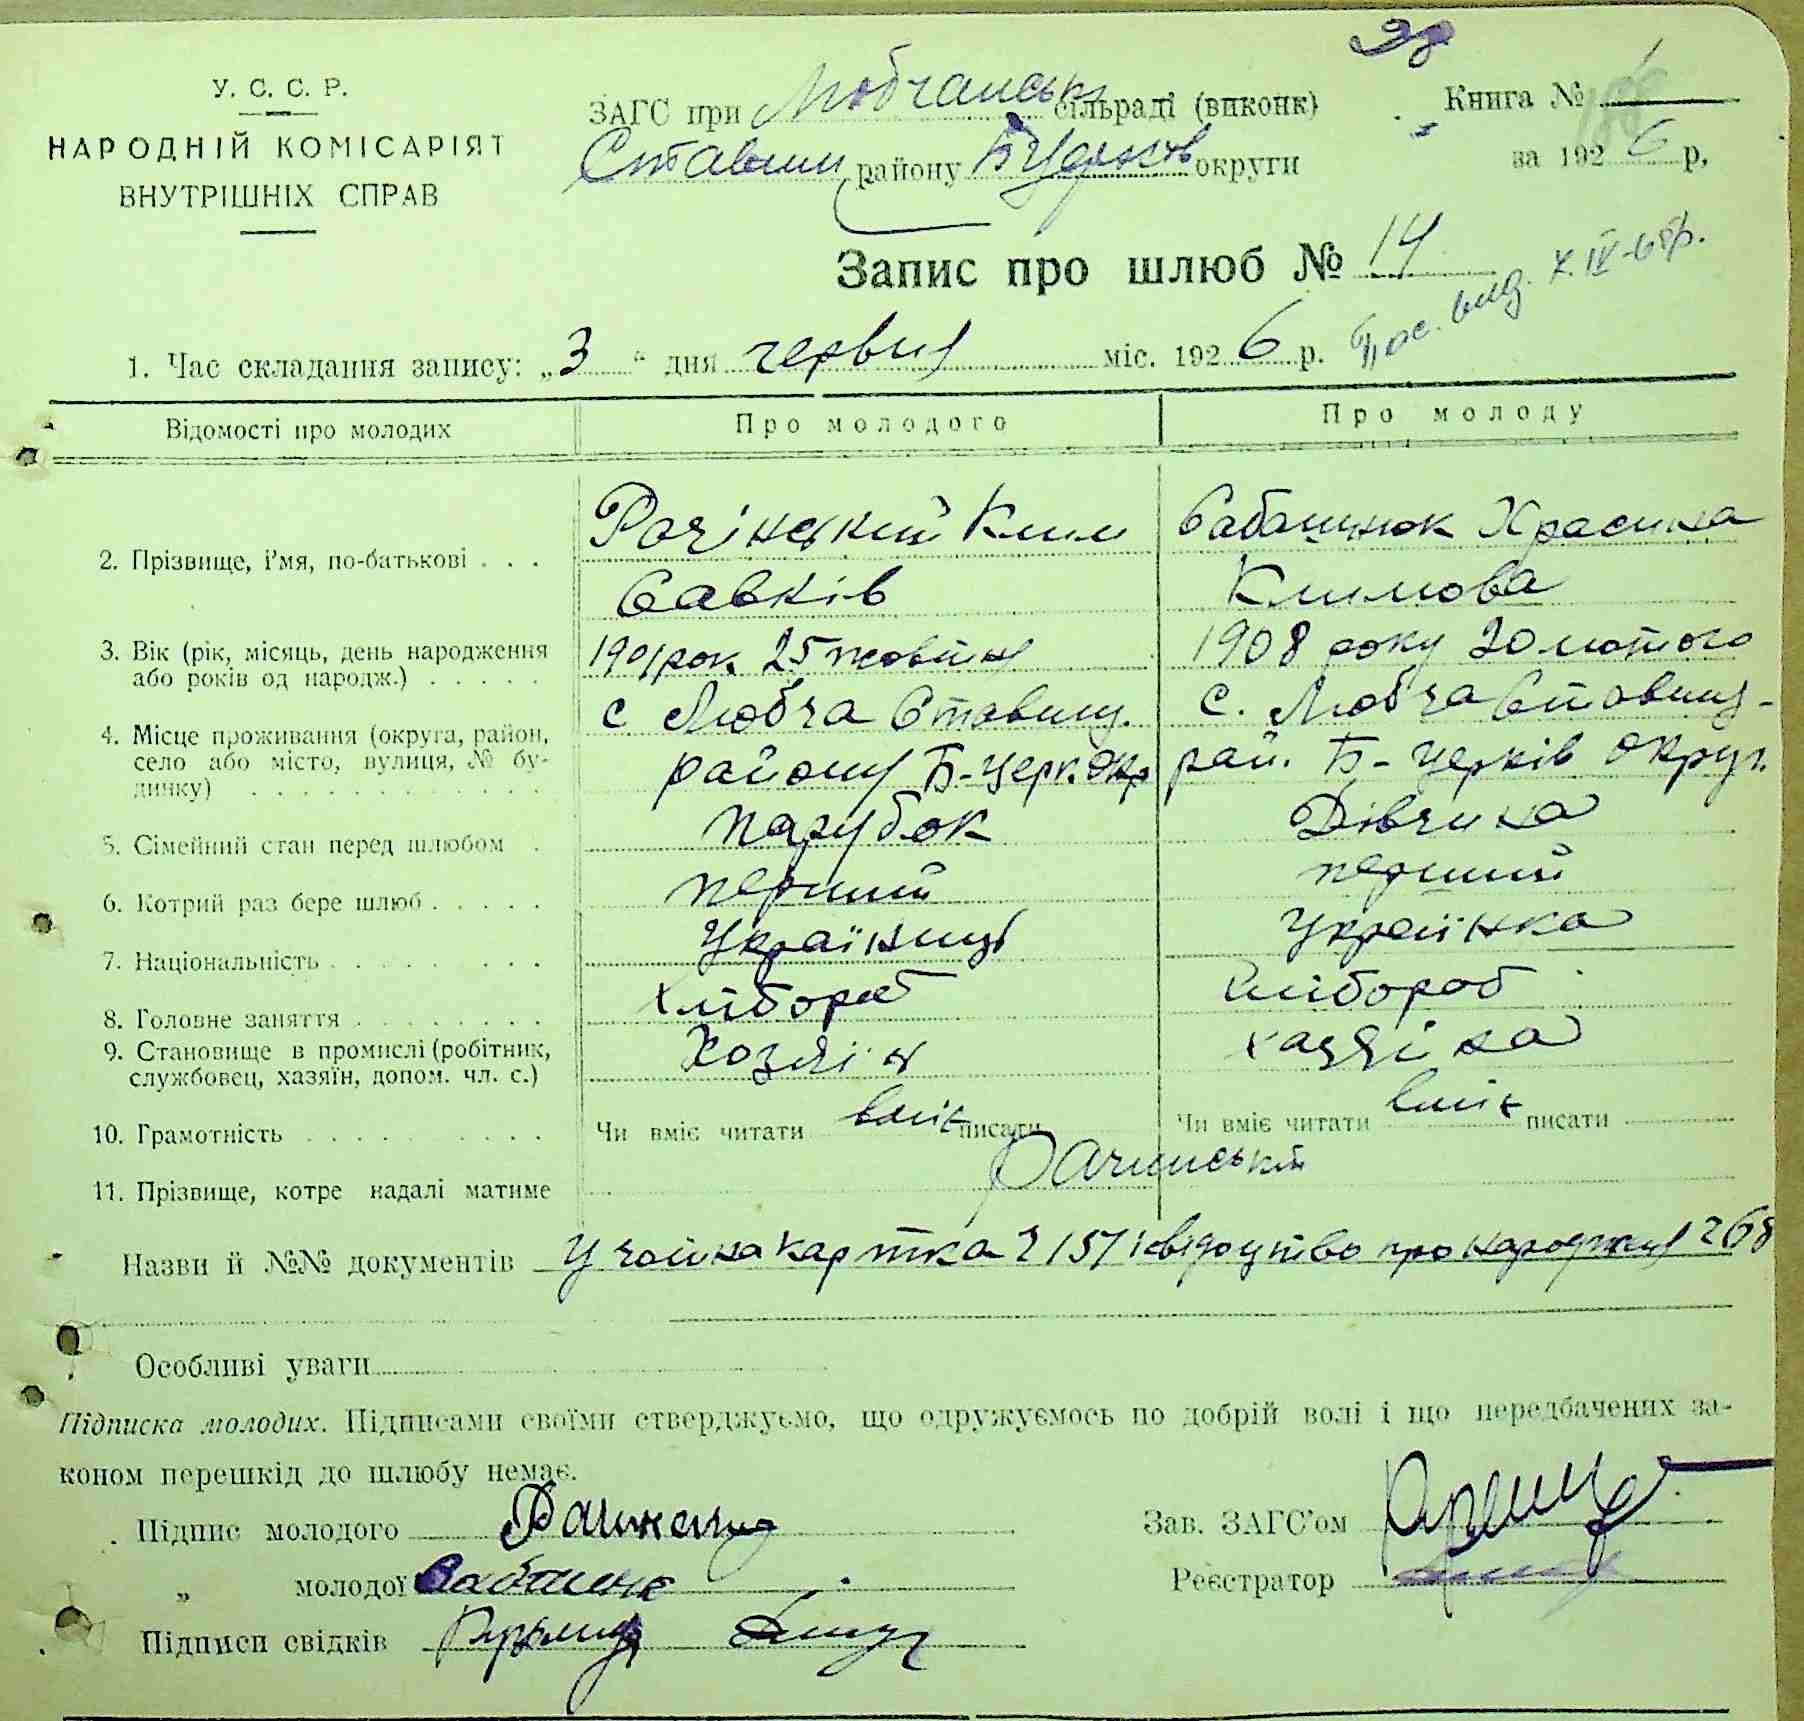 У. С. С. Р.
НАРОДНІЙ КОМІСАРІЯТ
ВНУТРІШНІХ СПРАВ
ЗАГС при Любчанськ сільраді (виконк)
Ставищ району Б Церков округи
Книга №
за 1926 р,
Запис про шлюб № 14
1. Час складання запису: „3“ дня червня міс. 1926 р.
Відомості про молодих
Про молодого
Про молоду
2. Прізвище, і'мя, по-батькові . . .
Рачінський Клим
Савків
Сабашнюк Храсина
Климова
3. Вік (рік, місяць, день народження
або років од народж.) . . . . .
1901 рок 25 жовтня
1908 року 20 лютого
4. Місце проживання (округа, район,
село або місто, вулиця, № бу-
динку) . . . . . . . . . . . .
с Любча Ставищ.
району Б-Церк. окр
с. Любча Ставищ-
рай. Б-Церків округ.
5. Сімейний стан перед шлюбом .
парубок
Дівчина
6. Котрий раз бере шлюб . . . . .
перший
перший
7. Національність . . . . . . . . .
Українець
Українка
8. Головне заняття . . . . . . . .
хлібороб
хлібороб
9. Становище в промислі (робітник,
службовец, хазяїн, допом. чл. с.)
Хозяін
хазяіка
10. Грамотність . . . . . . . . . .
Чи вміє читати вміє писати
Чи вміє читати вміє писати
11. Прізвище, котре надалі матиме
Рачинські
Назви й №№ документів
карткa Ч 157 свідоцтво про народження 268
Особливі уваги
Підписка молодих. Підписами своїми стверджуємо, що одружуємось по добрій волі і що передбачених за-
коном перешкід до шлюбу немає.
Підпис молодого
Зав. ЗАГС'ом
„ молодої
Реєстратор
Підписи свідків